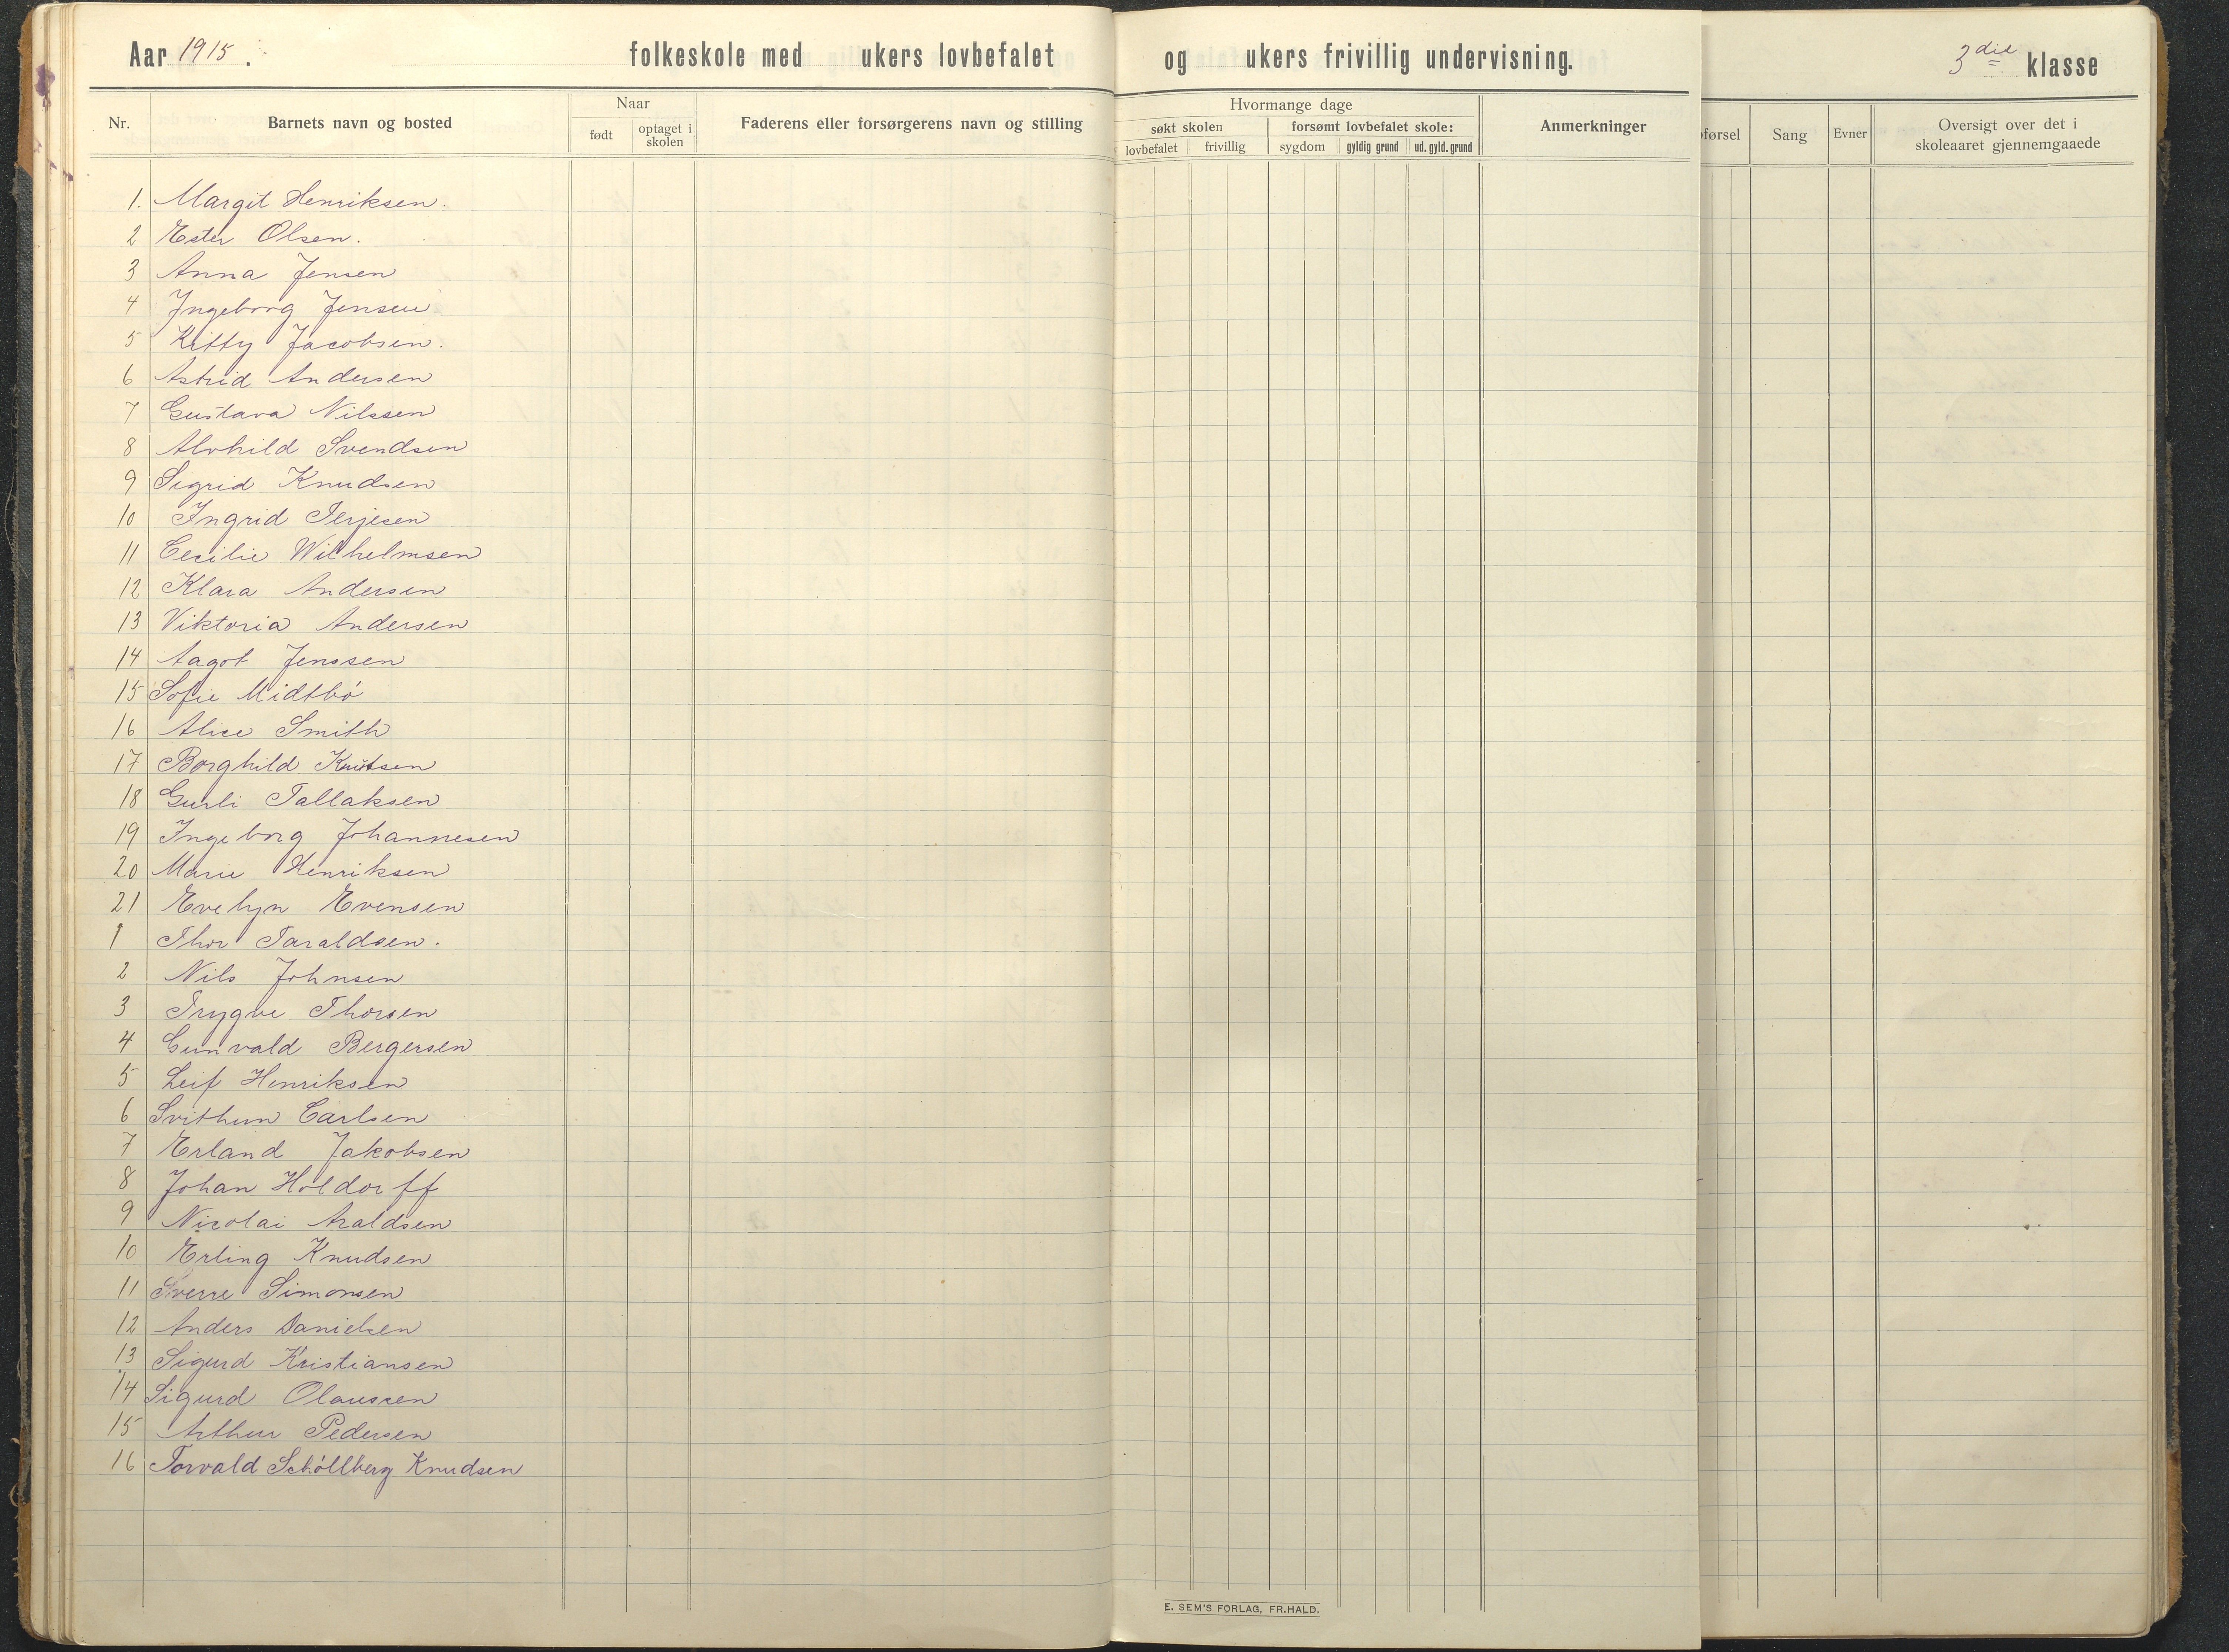 Aar 1915. folkeskole med ukers lovbefalet og ukers frivillig undervisning. 3die klasse
Nr. Barnets navn og bosted Naar født optaget i skolen Faderens eller forsørgerens navn og stilling
Hvormange dage Anmerkninger
søkt skolen forsømt lovbefalet skole:
lovbefalet frivillig sygdom gyldig grund ud. gyld. grund
førsel Sang Evner Oversigt over det i
skoleaaret gjennemgaaede
1. Margit Henriksen.
2 Ester Olsen.
3 Anna Jensen
4 Ingeborg Jensen
5 Kitty Jacobsen.
6 Astrid Andersen
7 Gustava Nilssen
8 Alvhild Svendsen
9 Sigrid Knudsen
10 Ingrid Terjesen
11 Cecilie Wilhelmsen
12 Klara Andersen
13 Viktoria Andersen
14 Aagot Jenssen
15 Sofie Midtbö
16 Alice Smith
17 Borghild Knutsen
18 Gurli Tallaksen
19 Ingeborg Johannesen
20 Marie Henriksen
21 Evelyn Evensen
1 Thor Taraldsen.
2 Nils Johnsen
3 Trygve Thorsen
4 Gunvald Bergersen
5 Leif Henriksen
6 Svithun Carlsen
7 Erland Jakobsen
8 Johan Holdorff
9 Nicolai Araldsen
10 Erling Knudsen
11 Sverre Simonsen
12 Anders Danielsen
13 Sigurd Kristiansen
14 Sigurd Olaussen
15 Arthur Pedersen
16 Torvald Schöllberg Knudsen
E. SEM'S FORLAG, FR.HALD.